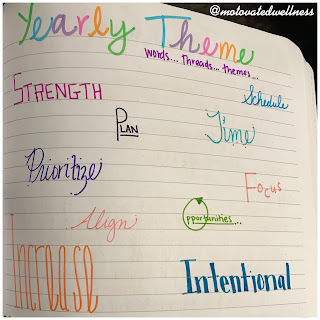 @motovatedwellness
Yearly Theme
words... threads... themes...
STRENGTH
Schedule
PLAN
Time
Prioritize
Focus
Align
Opportunities...
Increase
Intentional